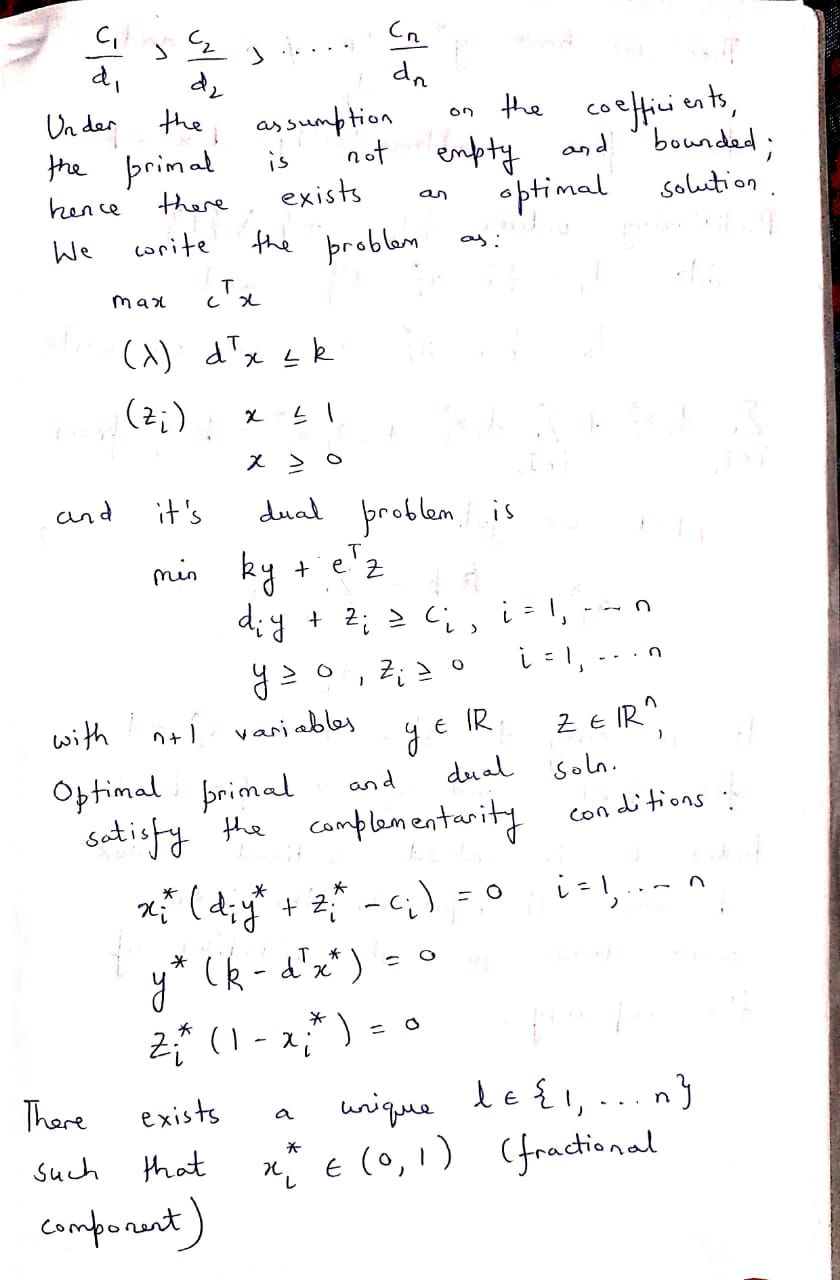 C₁/d₁ , C₂/d₂ , .... Cn/dn
Under the assumption on the coefficients,
the primal is not empty and bounded;
hence there exists an optimal solution.
We write the problem as:
max cᵀx
(λ) dᵀx ≤ k
(zᵢ) x ≤ 1
x ≥ 0
and it's dual problem is
min ky + eᵀz
dᵢy + zᵢ ≥ cᵢ, i = 1, --- n
y ≥ 0, zᵢ ≥ 0 i = 1, ---. n
with n+1 variables y ∈ ℝ z ∈ ℝⁿ,
Optimal primal and dual soln.
satisfy the complementarity conditions:
xᵢ* (dᵢy* + zᵢ* - cᵢ) = 0 i = 1, ..-- n
y* (k - dᵀx*) = 0
zᵢ* (1 - xᵢ*) = 0
There exists a unique l ∈ {1, ... n}
such that x_l* ∈ (0, 1) (fractional
component)